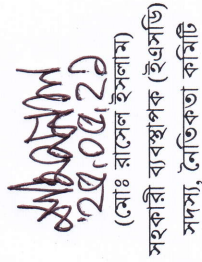 ২৫.০৫.২১
(মোঃ রাসেল ইসলাম)
সহকারী ব্যবস্থাপক (ইএসডি)
সদস্য, নৈতিকতা কমিটি